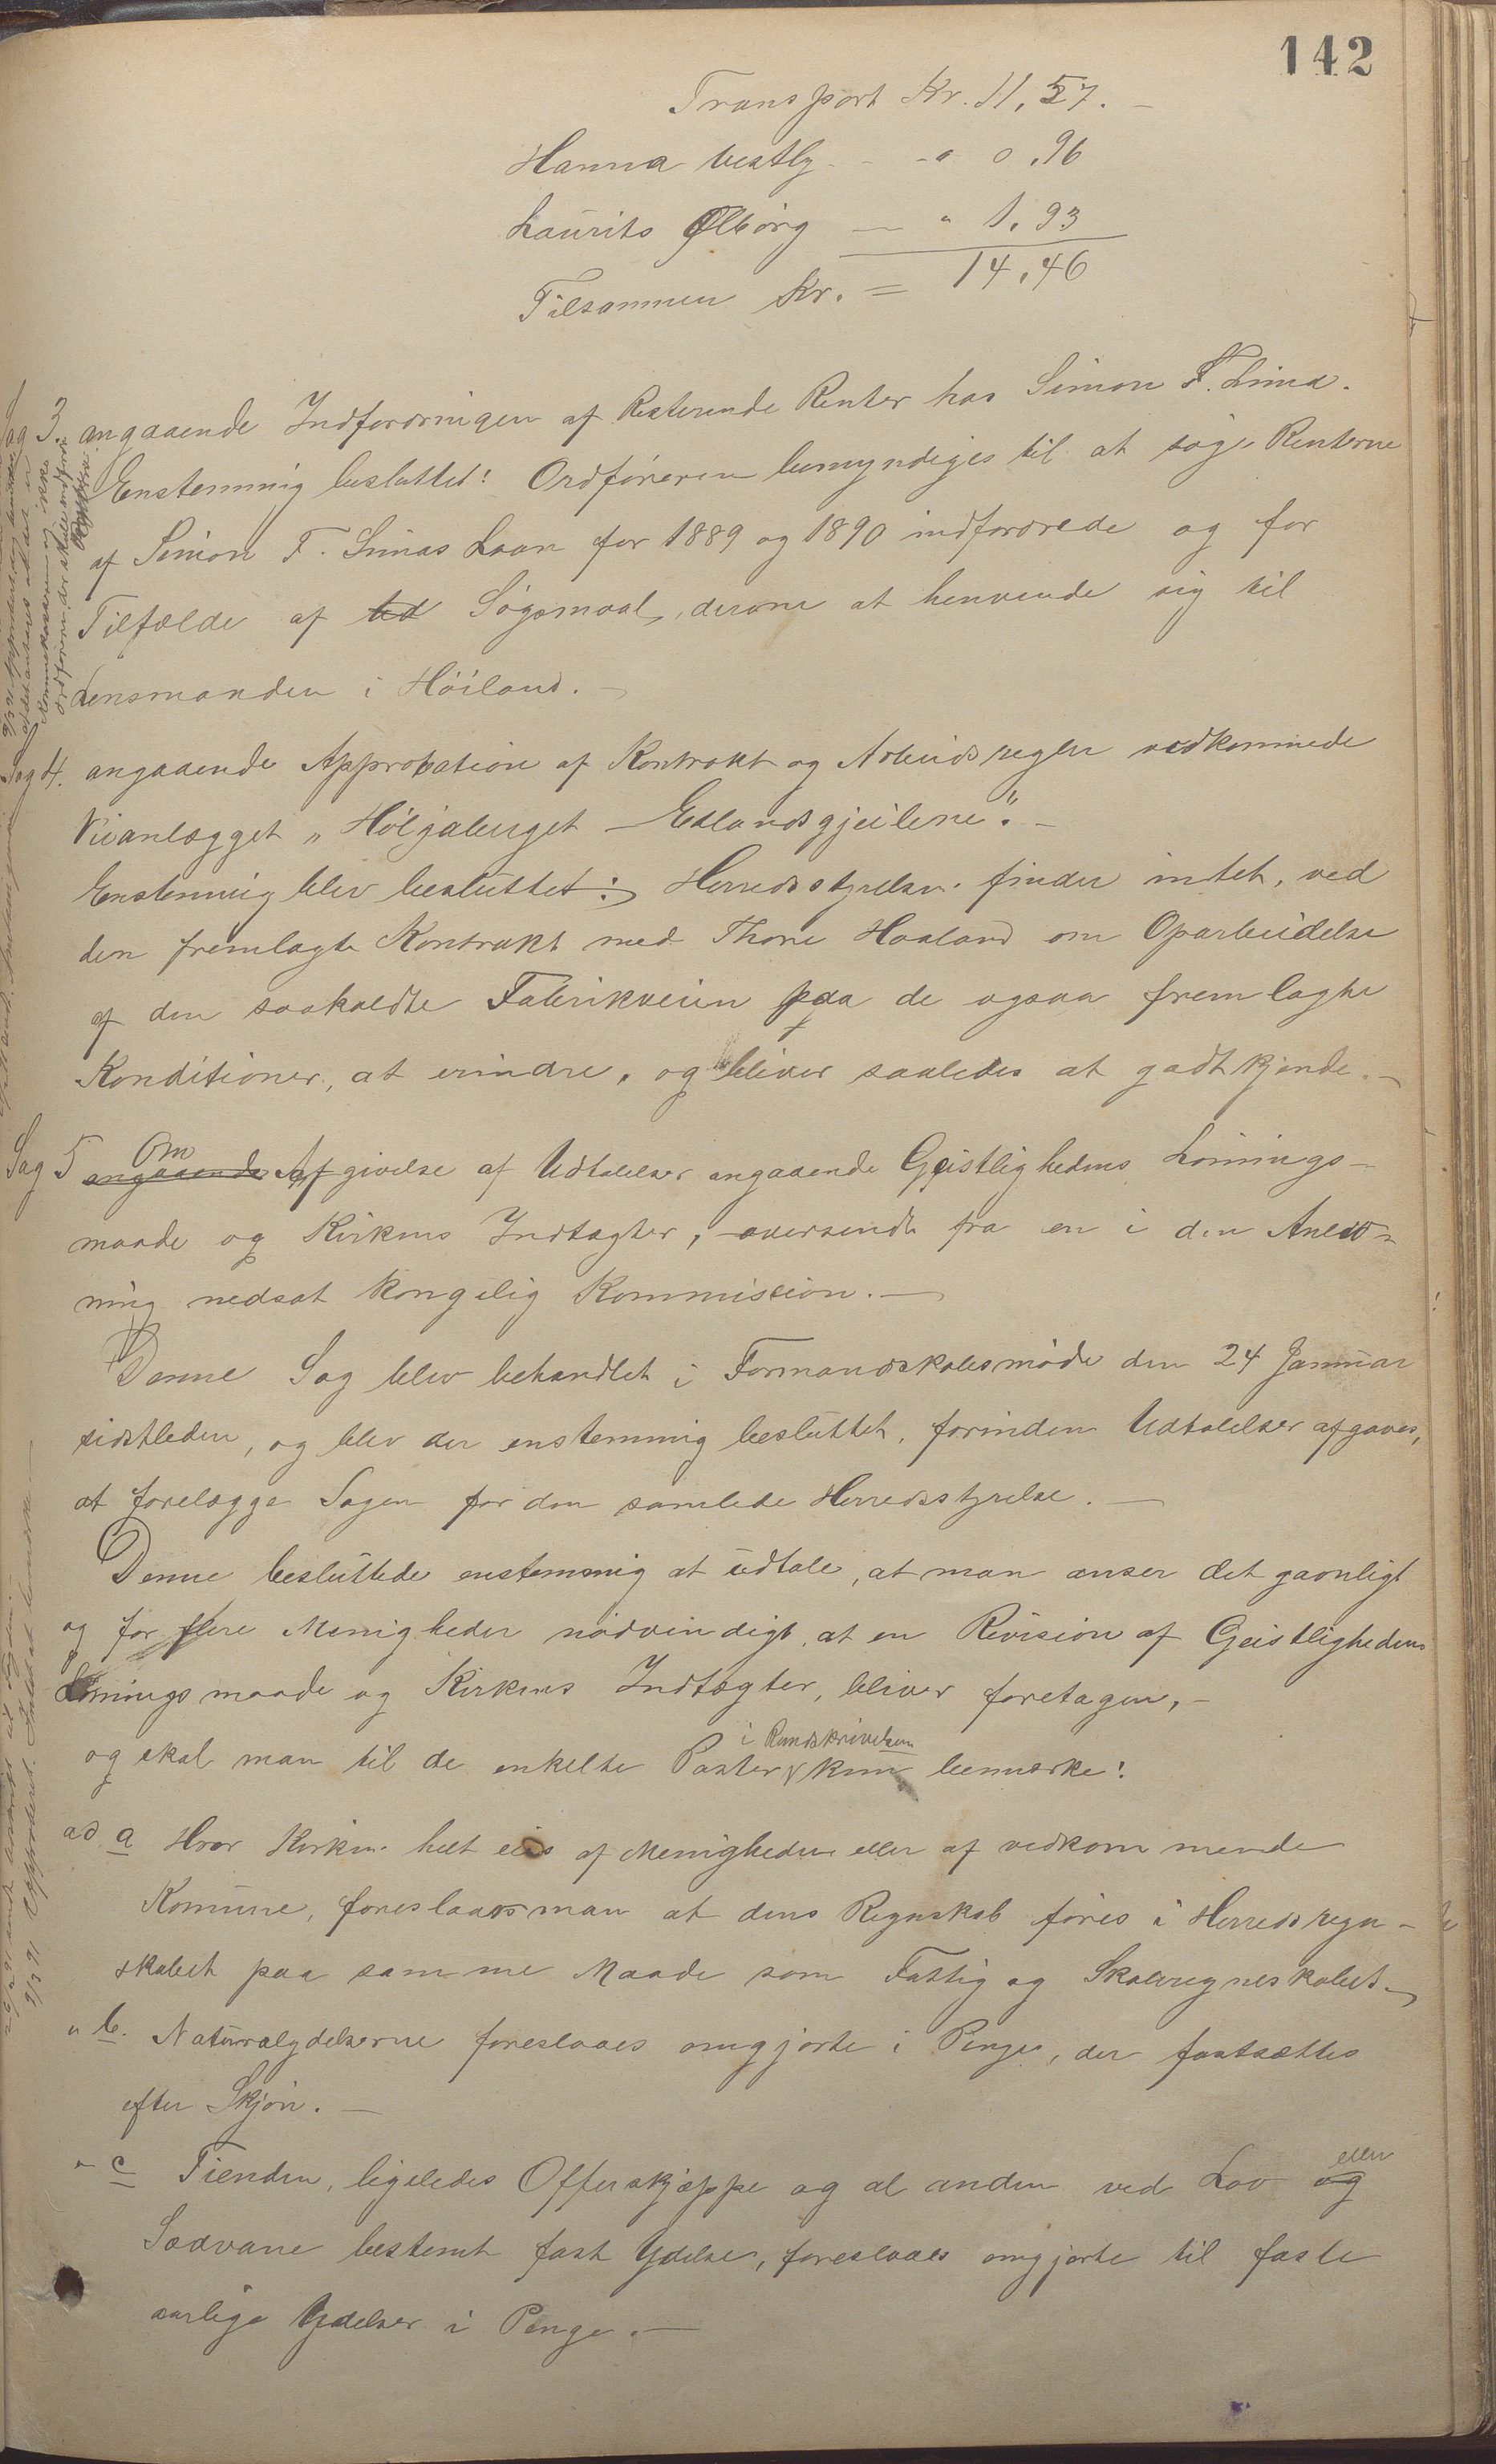 142
Transport Kr. 11,57. —
Hanna Vestly - - " 0,96
Laurits Ølborg — " 1,93
Tilsammen Kr. = 14,46
Sag 3. angaaende Indfordringen af Resterende Renter hos Simon F. Lima.
Enstemmig besluttet: Ordføreren bemyndiges til at søge Renterne
af Simon F. Limas Laan for 1889 og 1890 indfordrede og for
Tilfælde af ud Søgsmaal, derom at henvende sig til
Lensmanden i Høiland. —
Sag 4. angaaende Approbation af Kontrakt og Arbeidsregler vedkommende
Veianlægget „Høljaberget — Edlandsgjeilene". —
Enstemmig blev besluttet: Herredsstyrelsen finder intet, ved
den fremlagte Kontrakt med Thore Haaland om Oparbeidelse
af den saakaldte Fabrikveien paa de ogsaa fremlagte
Konditioner, at erindre, og bliver saaledes at godtkjende. —
Sag 5 angaaende Om Afgivelse af Udtalelser angaaende Geistlighedens Lønnings-
maade og Kirkens Indtægter, oversendt fra en i den Anled-
ning nedsat kongelig Kommission. —
Denne Sag blev behandlet i Formandskabsmøde den 24 Januar
sidstleden, og blev der enstemmig besluttet, forinden Udtalelser afgaves,
at forelægge Sagen for den samlede Herredsstyrelse. —
Denne besluttede enstemmig at udtale, at man anser det gavnligt
og for flere Menigheder nødvendigt, at en Revision af Geistlighedens
Lønningsmaade og Kirkens Indtægter, bliver foretagen, —
og skal man til de enkelte Poster i Rundskrivelsen kun bemærke:
ad a Hvor Kirken helt eies af Menigheden eller af vedkommende
Komune, foreslaaes man at dens Regnskab føres i Herredsregn-
skabet paa samme Maade som Fattig og Skoleregneskabet. —
" b. Naturalydelserne foreslaaes omgjorte i Penge, der fastsættes
efter Skjøn. —
" c Tienden, ligeledes Offerskjæppe og al anden ved Lov og eller
Sædvane bestemt fast Ydelse, foreslaaes omgjorte til faste
aarlige Ydelser i Penge. —